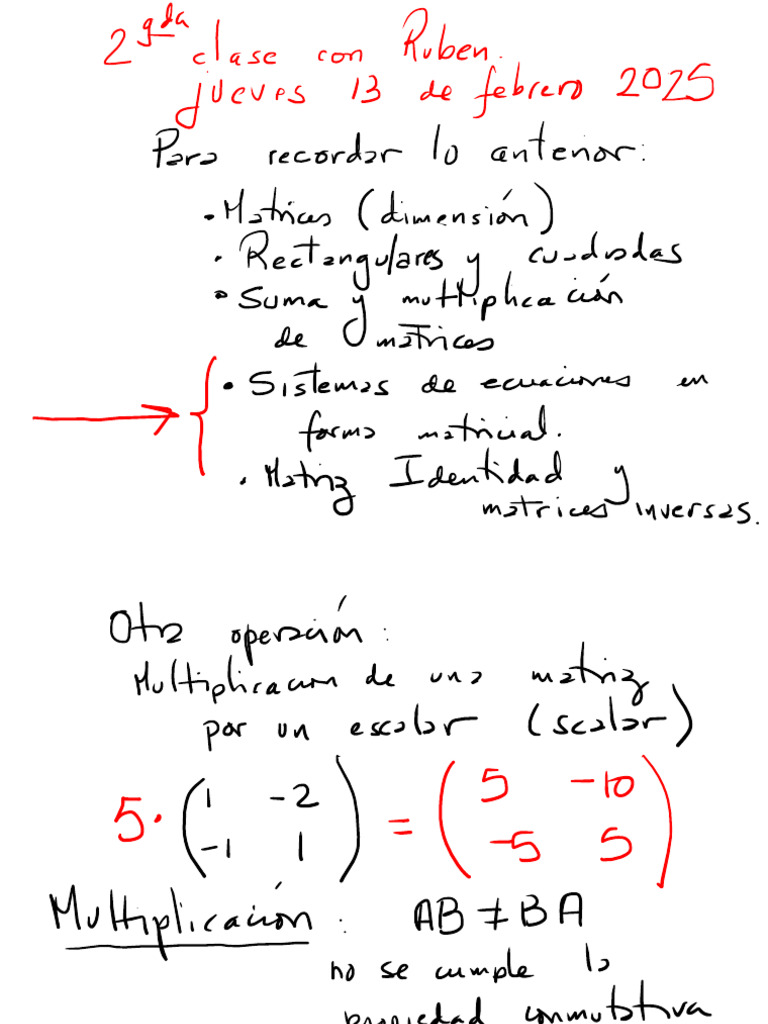 2gda clase con Ruben.
jueves 13 de febrero 2025
Para recordar lo anterior:
• Matrices (dimensión)
• Rectangulares y cuadradas
• Suma y multiplicación
de matrices
• Sistemas de ecuaciones en
forma matricial.
• Matriz Identidad y
matrices inversas.
Otra operación:
Multiplicación de una matriz
por un escalar (scalar)
5 · ( 1 -2 ) = ( 5 -10 )
( -1 1 ) ( -5 5 )
Multiplicación: AB ≠ BA
no se cumple la
propiedad conmutativa